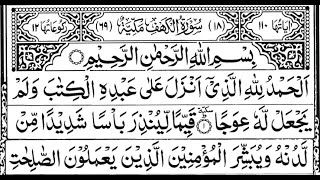 اٰيَاتُهَا ١١٠ (١٨) سُوْرَةُ الْكَهْفِ مَكِّيَّةٌ (٦٩) رُكُوْعَاتُهَا ١٢
بِسْمِ اللّٰهِ الرَّحْمٰنِ الرَّحِيْمِ
اَلْحَمْدُ لِلّٰهِ الَّذِيْٓ اَنْزَلَ عَلٰى عَبْدِهِ الْكِتٰبَ وَلَمْ
يَجْعَلْ لَّهٗ عِوَجًا ۝ قَيِّمًا لِّيُنْذِرَ بَاْسًا شَدِيْدًا مِّنْ
لَّدُنْهُ وَيُبَشِّرَ الْمُؤْمِنِيْنَ الَّذِيْنَ يَعْمَلُوْنَ الصّٰلِحٰتِ